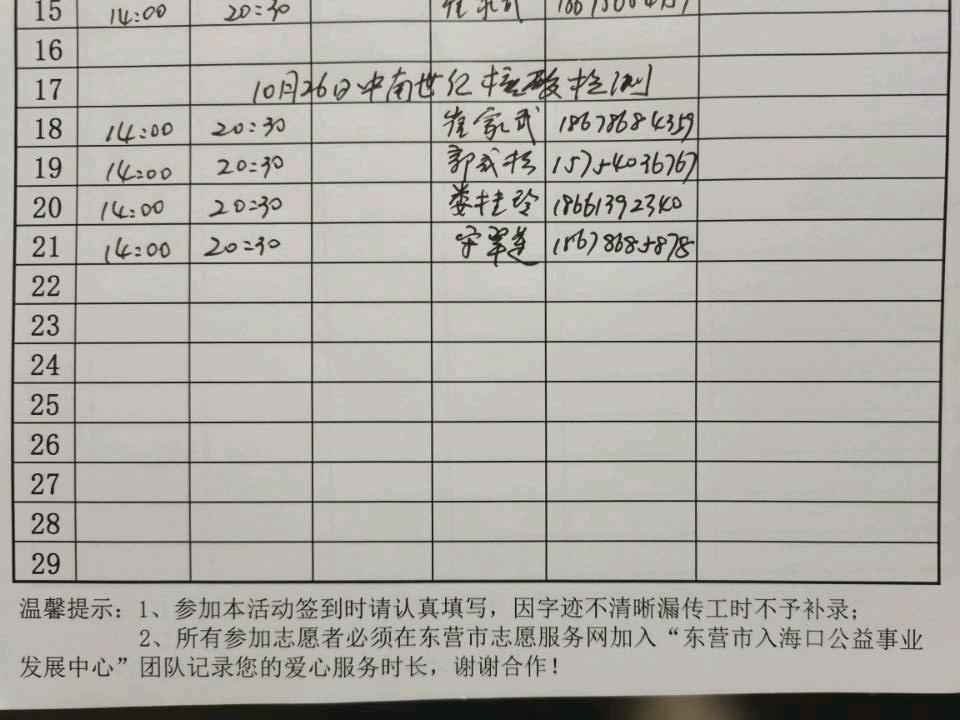 15 14:00 20:30
16
17 10月26日中南世纪核酸检测
18 14:00 20:30 崔家武 18678684359
19 14:00 20:30 郭武松 15754036767
20 14:00 20:30 娄桂玲 18661392340
21 14:00 20:30 翠莲 15678685878
22
23
24
25
26
27
28
29
温馨提示：1、参加本活动签到时请认真填写，因字迹不清晰漏传工时不予补录；
2、所有参加志愿者必须在东营市志愿服务网加入“东营市入海口公益事业
发展中心”团队记录您的爱心服务时长，谢谢合作！